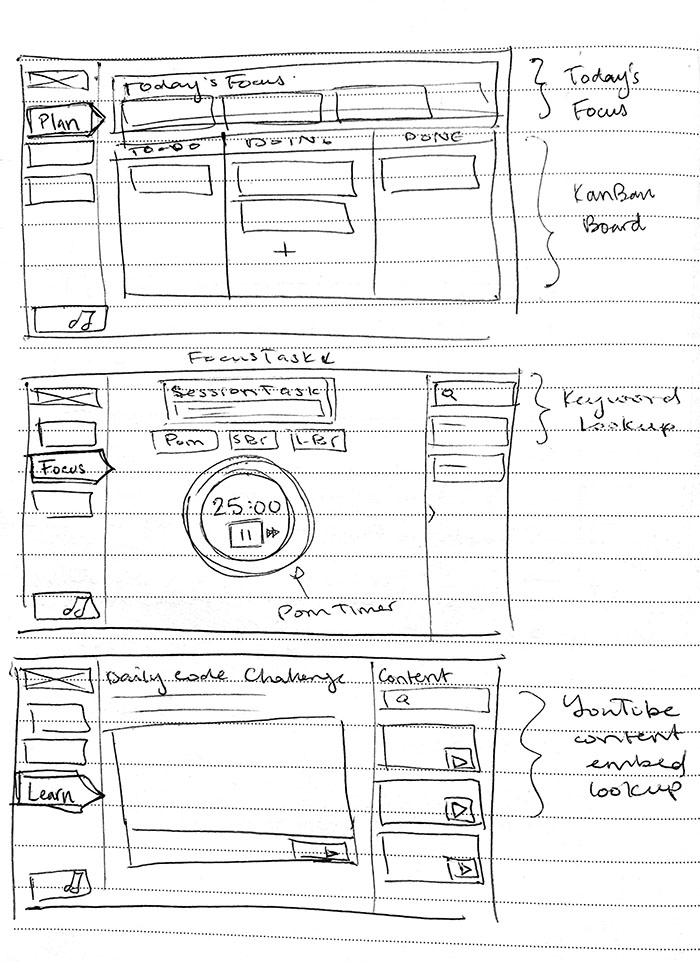 Today's Focus
Plan
TO-DO
DOING
DONE
+
Today's
Focus
KanBan
Board
Focus Task
Session Task
Pom
SBr
L-Br
Focus
25:00
Pom Timer
Keyword
Lookup
Daily Code Challenge
Content
Learn
YouTube
content
embed
lookup